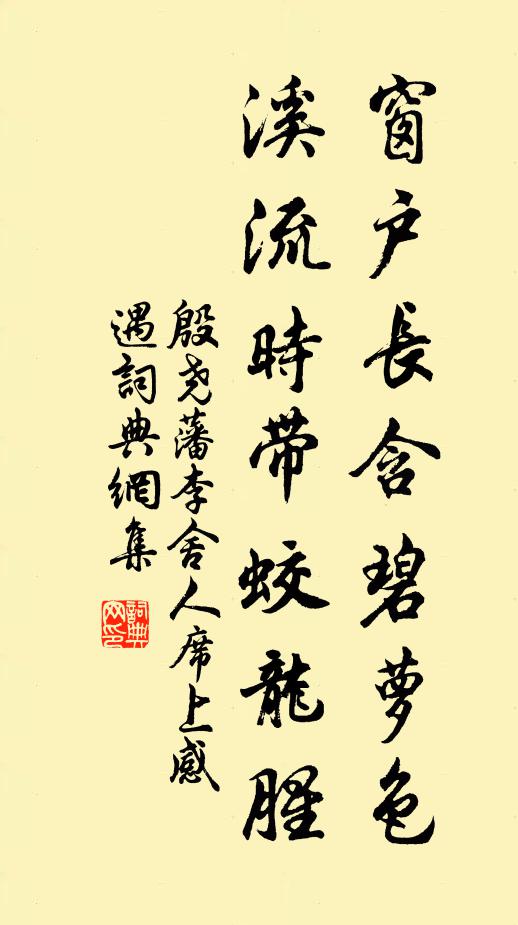 窗户長含碧萝色
溪流時带蛟龍腥
殷尧藩李舍人席上感
遇詞典網集
詞典
网印